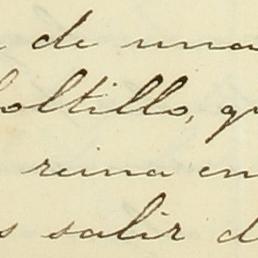 de una
oltillo, q
reina en
s salir d